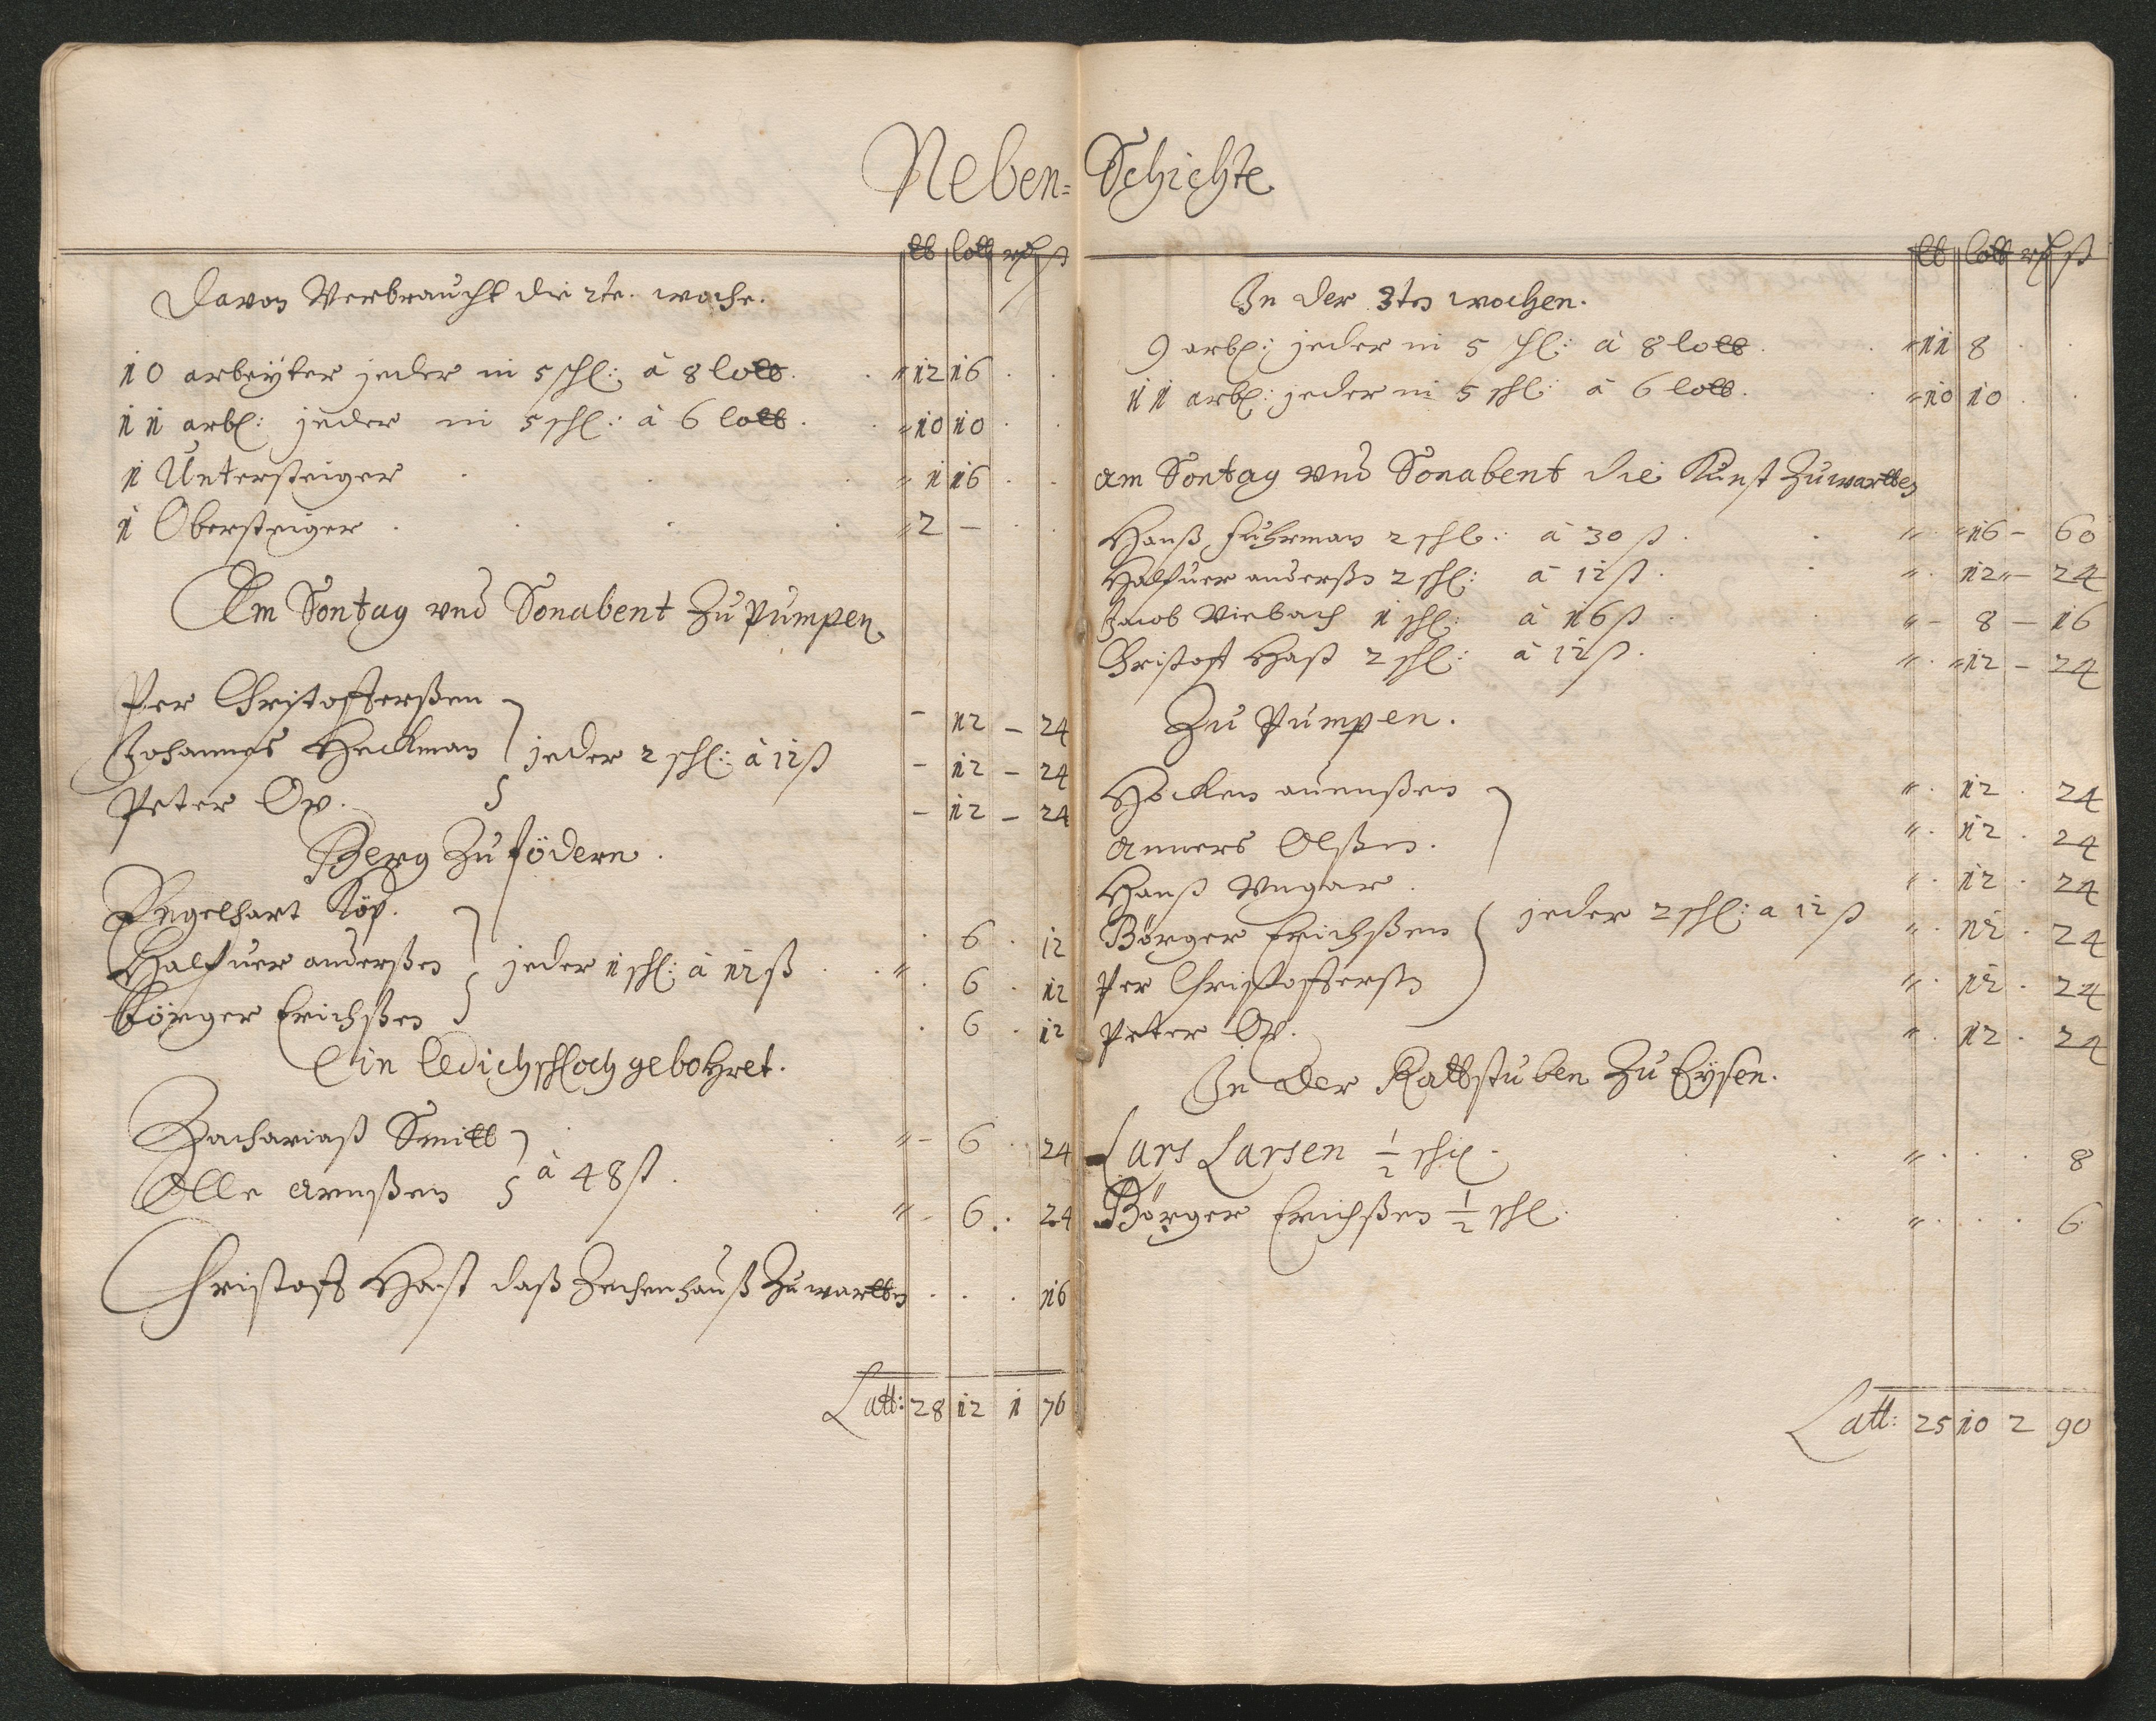 Neben= Schichte
lb lott rd ß
Davon Verbraucht die 2te. woche.
10 arbeyter jeder in 5 schl: à 8 lott. " 12 16 . .
11 arb: jeder in 5 schl: à 6 lott. " 10 10 . .
1 Untersteiger . . . " 1 16 . .
1 Obersteiger . . . " 2 — . .
Am Sontag vnd Sonabent Zu Pumpen
Per Christofferßen - 12 - 24
Johannes Heckman jeder 2 schl: à 12 ß - 12 - 24
Peter Ox. - 12 - 24
Berg Zu födern.
Engelhart Köp. . 6 . 12
Halfuer anderßen jeder 1 schl: à 12 ß " . 6 . 12
Börger Erichßen . 6 . 12
Ein ledich schloch gebohret.
Zachariaß Smitt " - 6 . 24
Olle arenßen à 48 ß. " - 6 . 24
Christoff Hast daß Zechenhauß Zu wartten . . . 16
Latt: 28 12 1 76
lb lott rd ß
In der 3ten wochen.
9 arb: jeder in 5 schl: à 8 lott. " 11 8 . .
11 arb: jeder in 5 schl: à 6 lott. " 10 10 . .
am Sontag vnd Sonabent die Kunst Zu wartten
Hanß fuhrman 2 schl: à 30 ß. " " 16 - 60
Halfuer anderßen 2 schl: à 12 ß. " . 12 " - 24
Jacob Viebach 1 schl: à 16 ß. " - 8 - 16
Christoff Hast 2 schl: à 12 ß. " . " 12 - 24
Zu Pumpen.
Hocken auenßen " . 12 . 24
Anners Olßen. " . 12 . 24
Hanß Ungar. " . 12 . 24
Börger Erichßen jeder 2 schl: a 12 ß " . 12 . 24
Per Christofferßen " . 12 . 24
Peter Ox. " . 12 . 24
In der Rattstuben Zu Eysen.
Lars Larsen 1/2 schl. " . . . 8
Börger Erichßen 1/2 schl: " . . . 6
Latt: 25 10 2 90